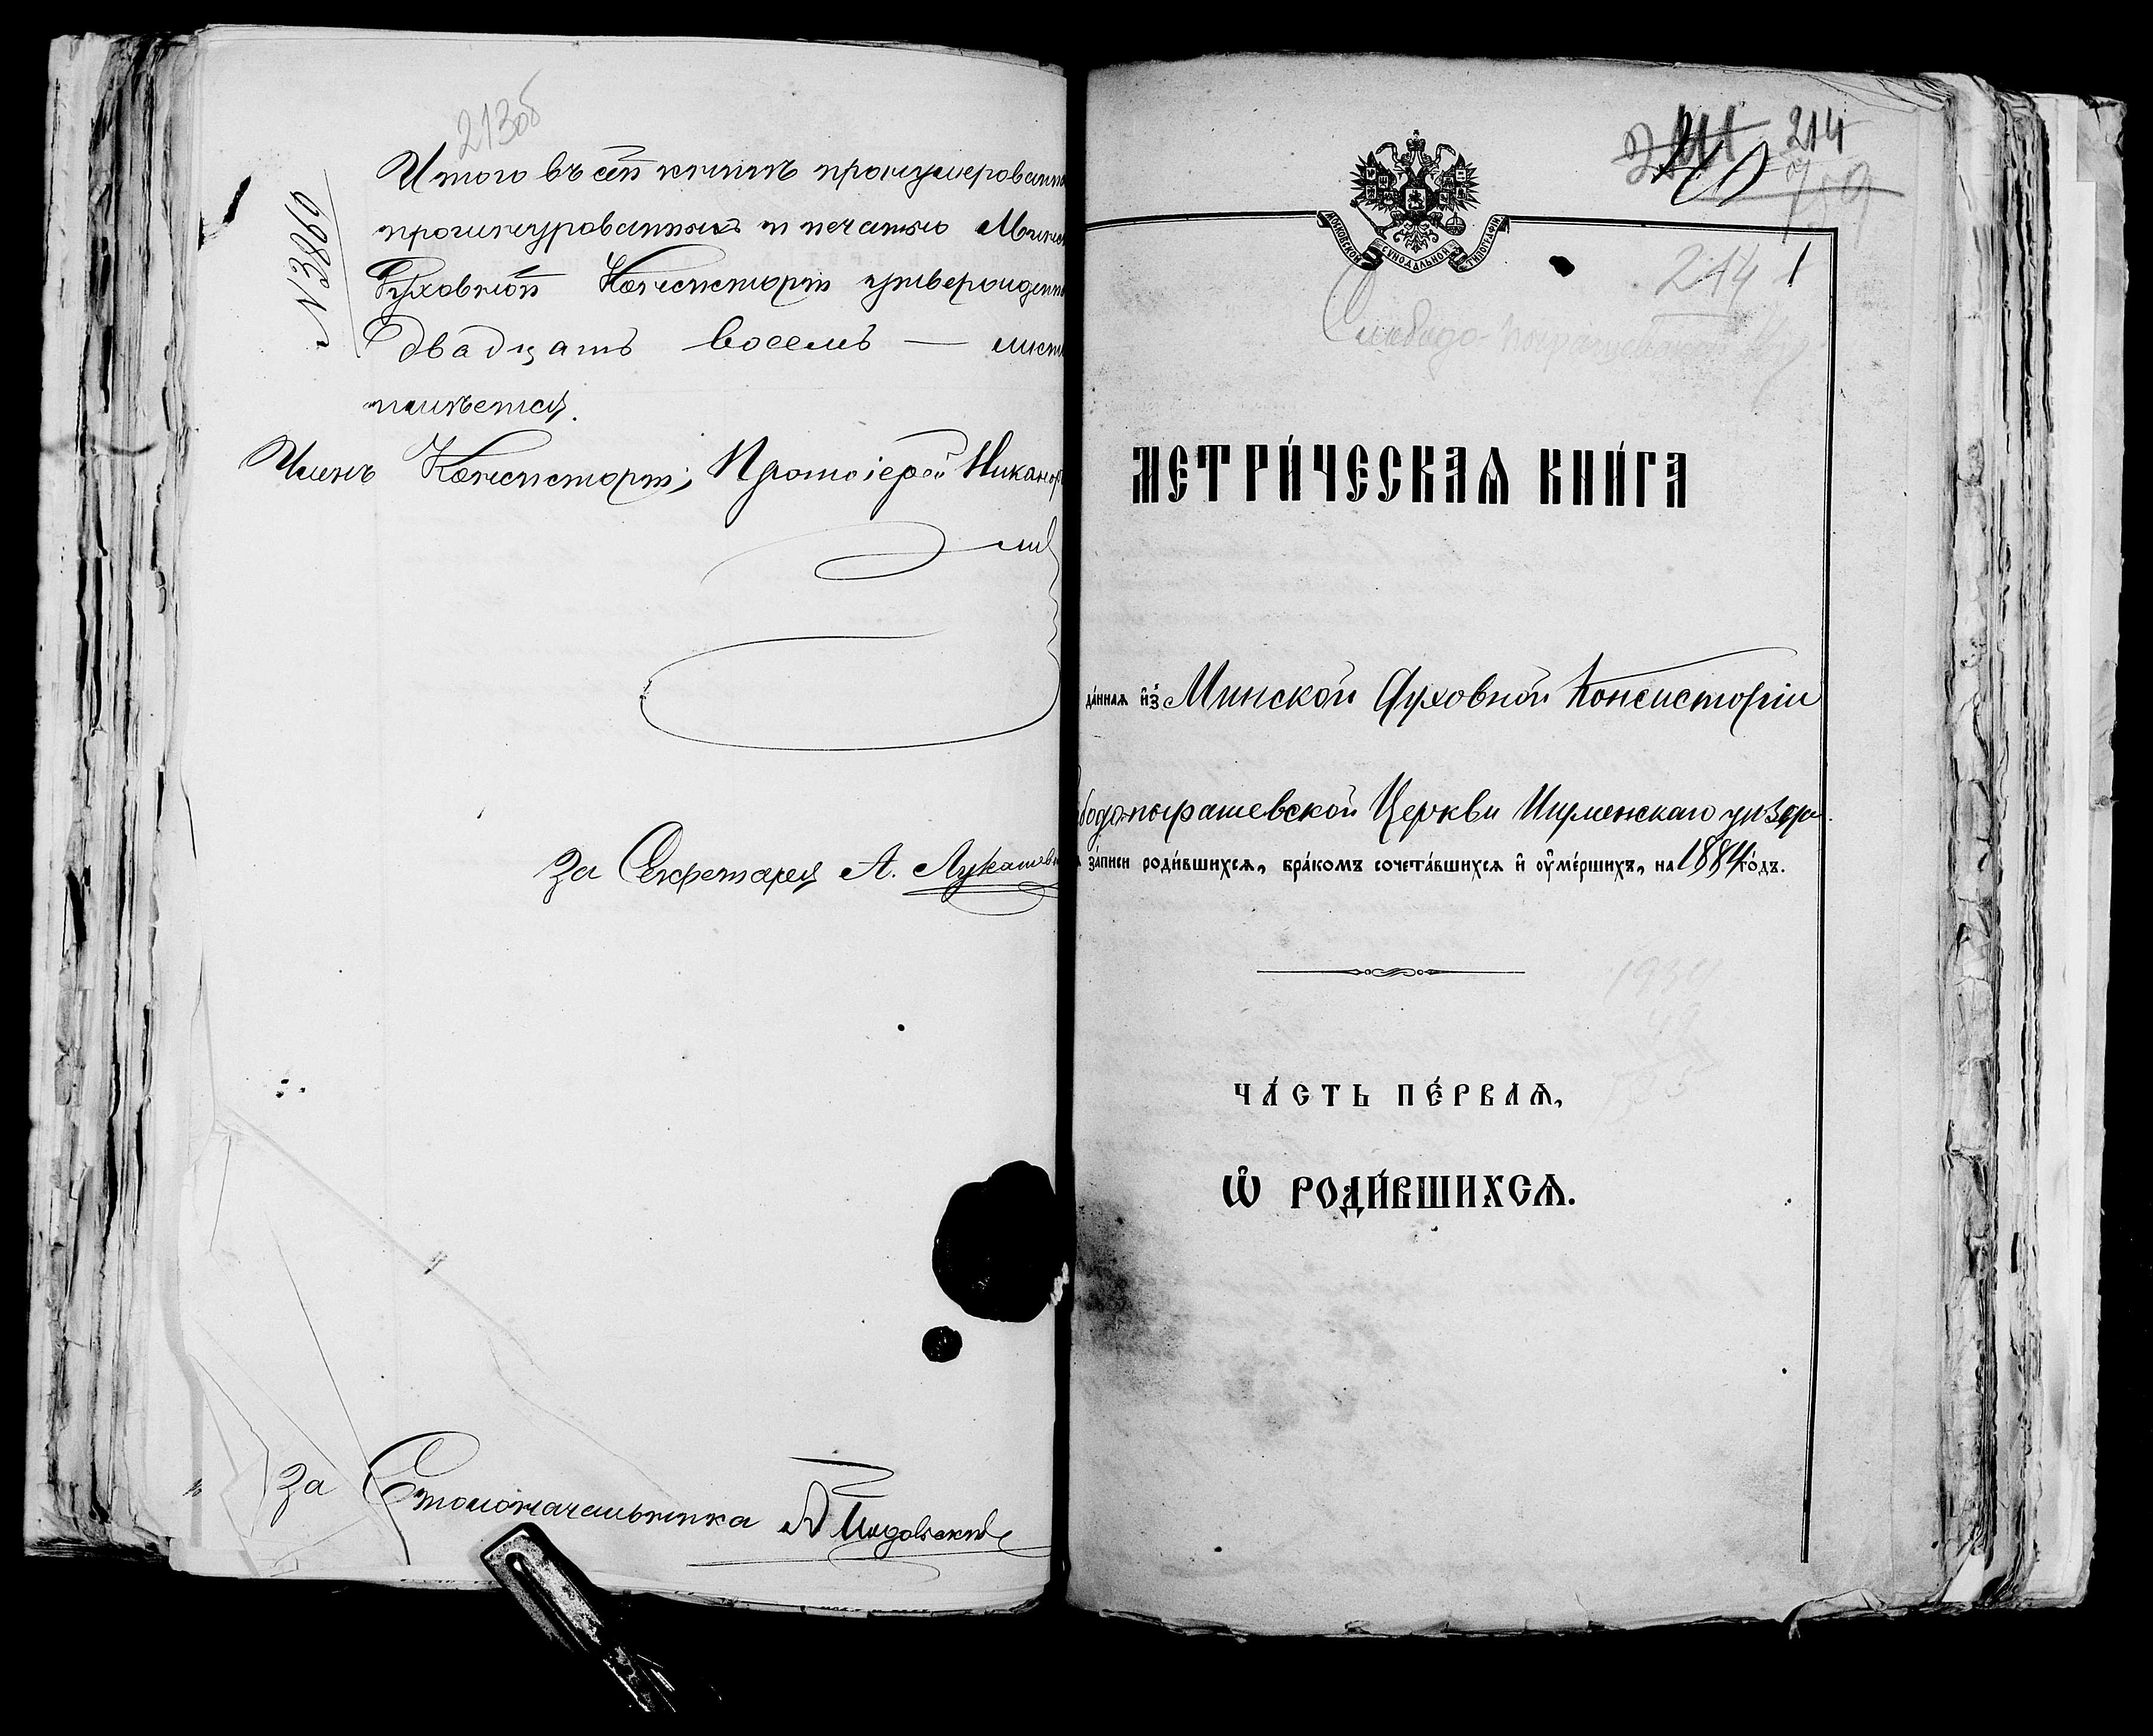 213об
№ 3860
Итого въ сей книгѣ пронумерованны
прошнурованныхъ и печатью Минс
Духовной Консисторіи утвержденны
двадцать восемь — лист
имѣется.
Членъ Консисторіи, Протоіерей Никанор
За Секретаря А. Лукашев
За Столоначальника
214
214 1
МОСКОВСКОЙ СѴНОДАЛЬНОЙ ТИПОГРАФІИ
Слободо-пырашевской
МЕТРИ́ЧЕСКАѦ КНИ́ГА
да́ннаѧ и҆з̾ Минской Духовной Консисторіи
бодо-пырашевской Церкви Игуменскаго уѣзда
за́писи роди́вшихсѧ, бра́комъ сочета́вшихсѧ и҆ ᲂу҆ме́ршихъ, на 1884 го́дъ.
ЧА́СТЬ ПЕ́РВАѦ,
Ѡ҆ РОДИ́ВШИХСѦ.